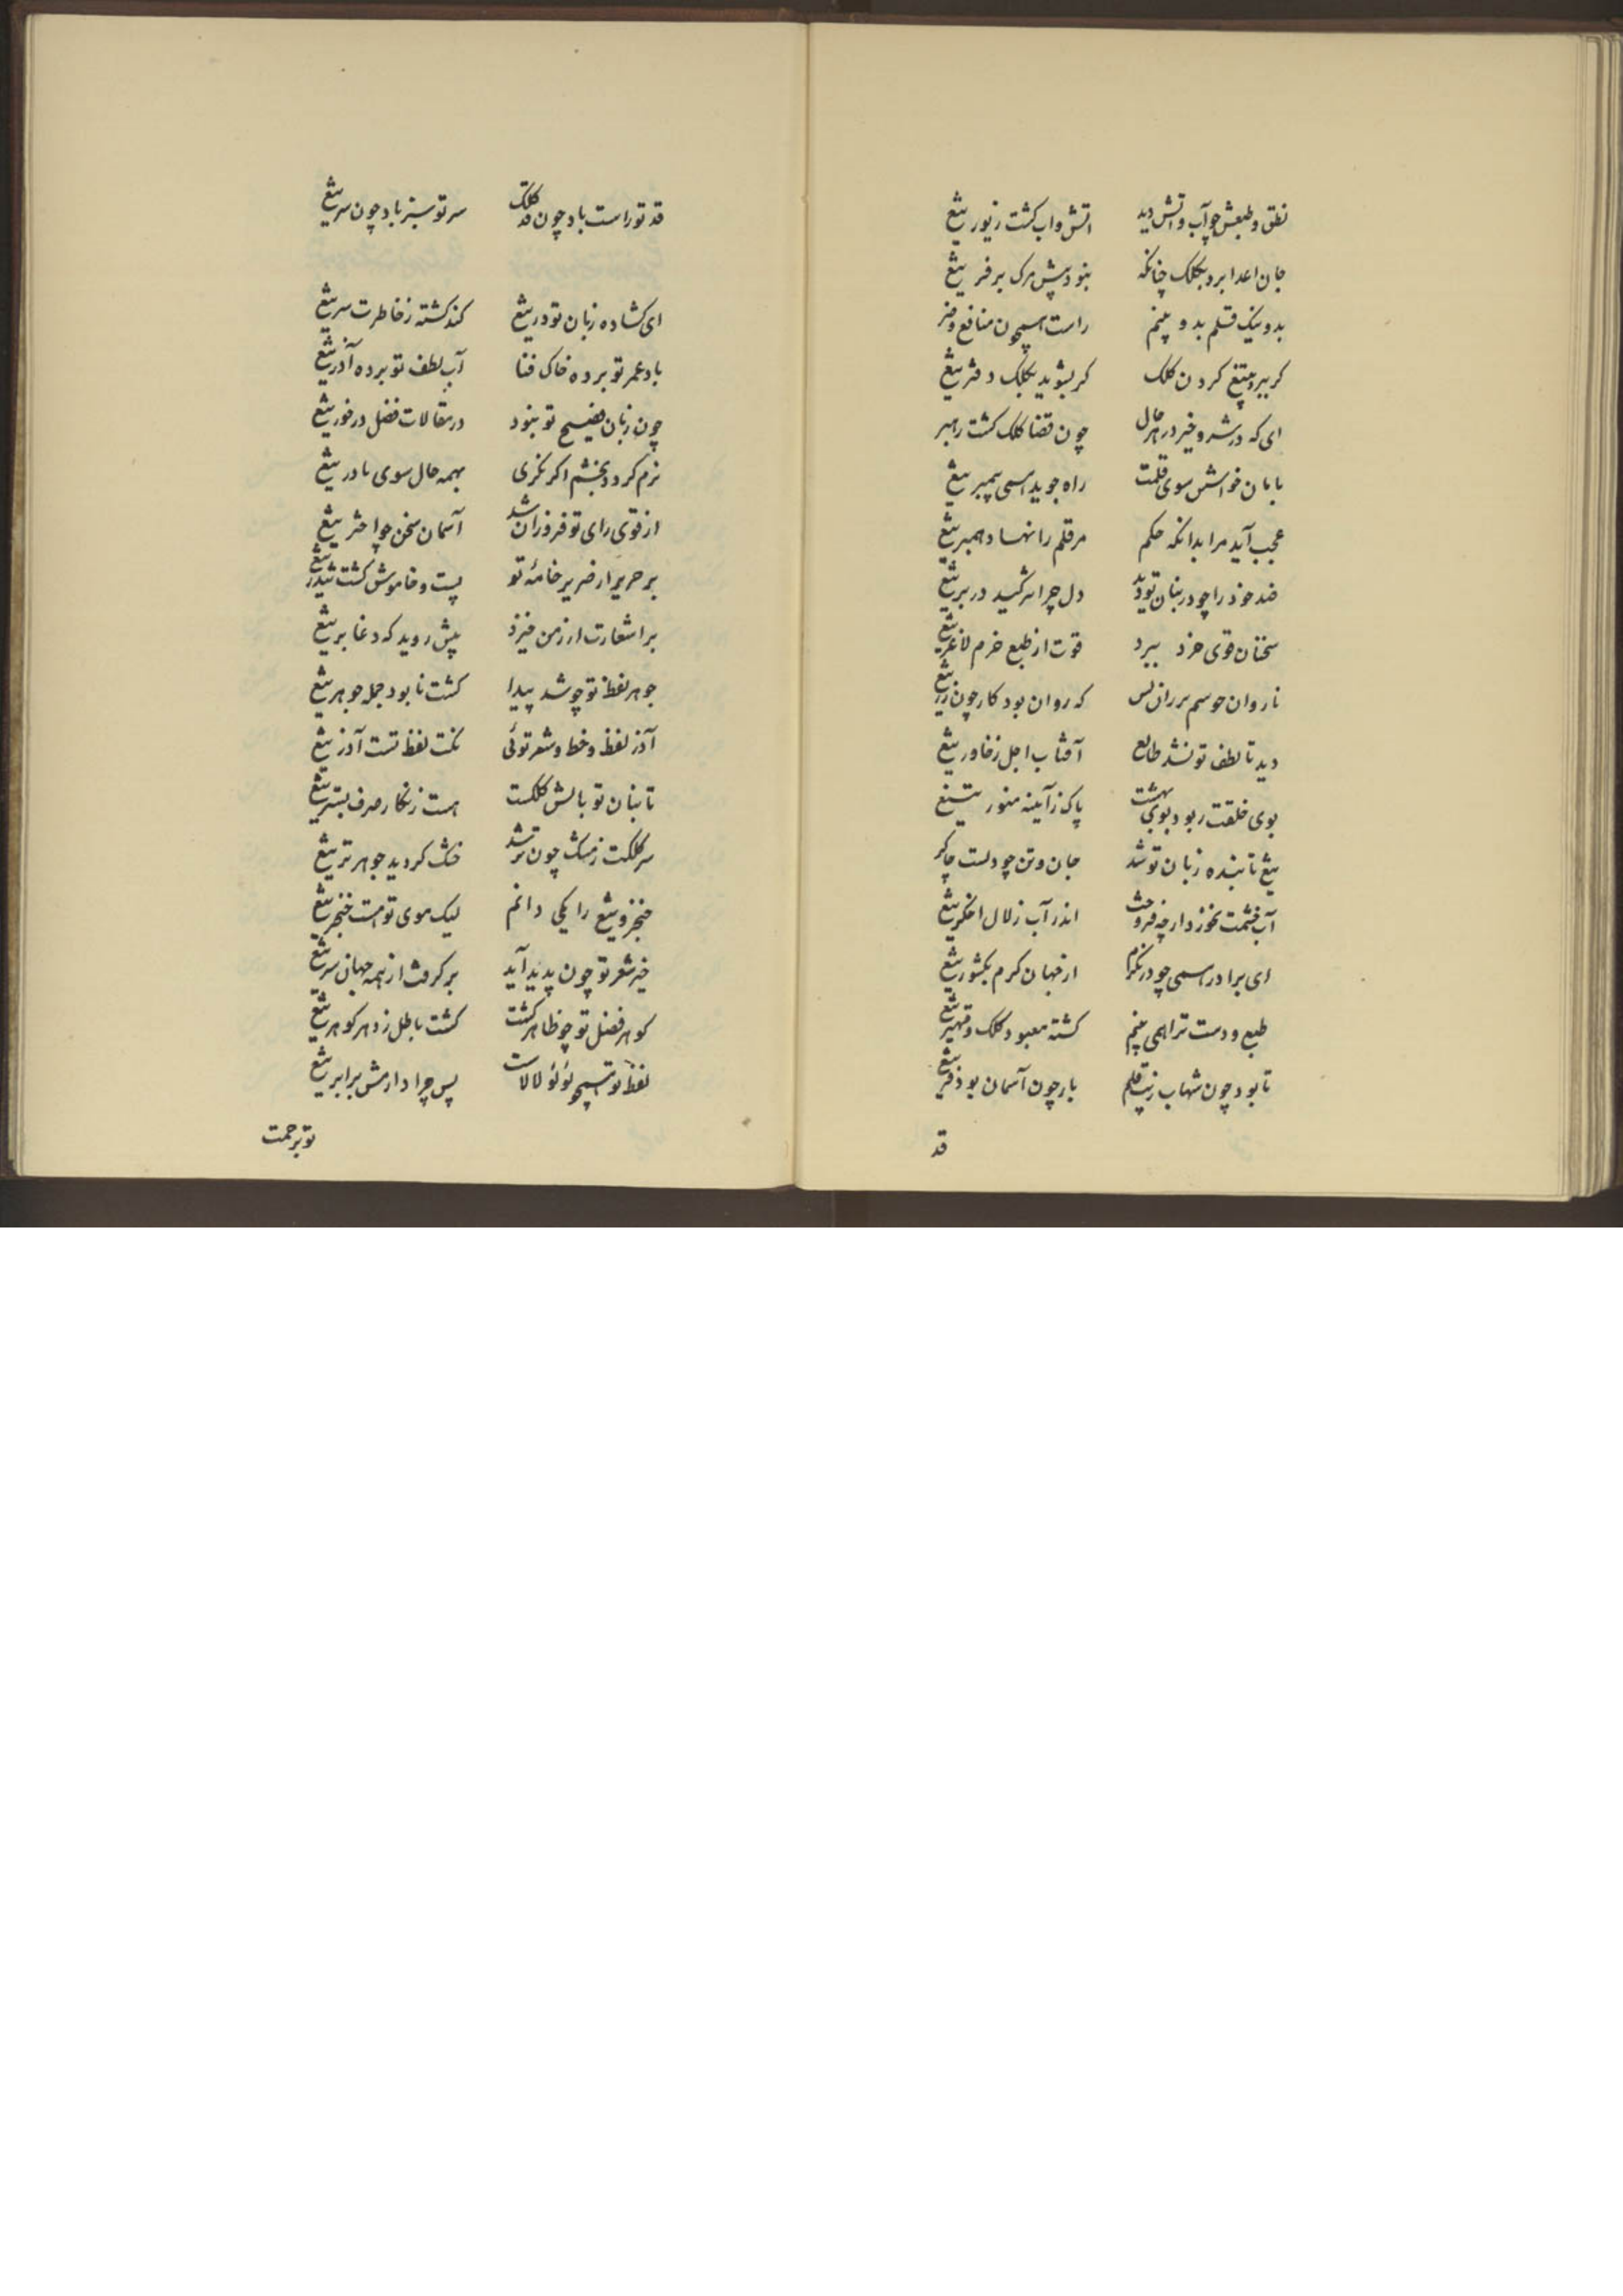 نطق و طبعش چو آب و آتش دید اتش و اب کشت زیور تیغ
جان اعدا برد بکلک چنانکه نبود پیش مرک برفر تیغ
بد و نیک قلم بد و بینم راست همچون منافع و ضر
کر ببرد بتیغ کردن کلک کر بشوید بکلک دفتر تیغ
ای که در شر و خیر در هر حال چون قضا کلک کشت رهبر
بابان خواستن سوی قلمت راه جوید همی بمبر تیغ
عجب آید مرا بدانکه حکم مر قلم را نهاد همبر تیغ
ضد خود را چو در بنان تو دید دل چرا برکشید در بر تیغ
سخنان قوی خرد ببرد قوت از طبع خرم لاغر تیغ
که روان بود کار چون زر تیغ
دید تا لطف تو نشد طالع آفتاب اجل ز خاور تیغ
بوی خلقت ربود بوی بهشت پاک ز آینه منور تیغ
تیغ تا بنده زبان تو شد جان و تن چو دلت چاکر
آب خشمت اندر آب زلال اخکر تیغ
ای برادر همی چو درنکرم از جهان کرم بکشور تیغ
طبع و دست ترا همی بینم کشته معبود کلک و قهر تیغ
تا بود چون شهاب زیب قلم بار چون آسمان بود فر تیغ
قد
قد تو راست باد چون قد کلک سر تو سبز باد چون سر تیغ
ای کشاده زبان تو در تیغ کند کشته ز خاطرت سر تیغ
باد عمر تو برده خاک فنا آب لطف تو برده آذر تیغ
چون زبان فصیح تو نبود در مقالات فضل در خور تیغ
نرم کردد بخشم اکر نکری بهمه حال سوی مادر تیغ
از قوی رای تو فروزان شد آسمان سخن چو اختر تیغ
بر حریر از صریر خامهٔ تو پست و خاموش کشت تندر تیغ
بر اشعارت ار ز من خیزد پیش روید که دغا بر تیغ
جوهر لفظ تو چو شد پیدا کشت نابود جمله جوهر تیغ
آذر لفظ و خط و شعر توئی نکت لفظ تست آذر تیغ
تا بنان تو بالش کلکست هست زنکار صرف بستر تیغ
سر کلکت ز مشک چون تر شد خشک کردید جوهر تر تیغ
خنجر و تیغ را یکی دانم لیک موی تو هست خنجر تیغ
خیر شعر تو چون پدید آید بر کرفت از همه جهان سر تیغ
کوهر فضل تو چو ظاهر کشت کشت باطل ز دهر کوهر تیغ
لفظ تو همچو لؤلؤ لالاست پس چرا دارمش برابر تیغ
تو برحمت